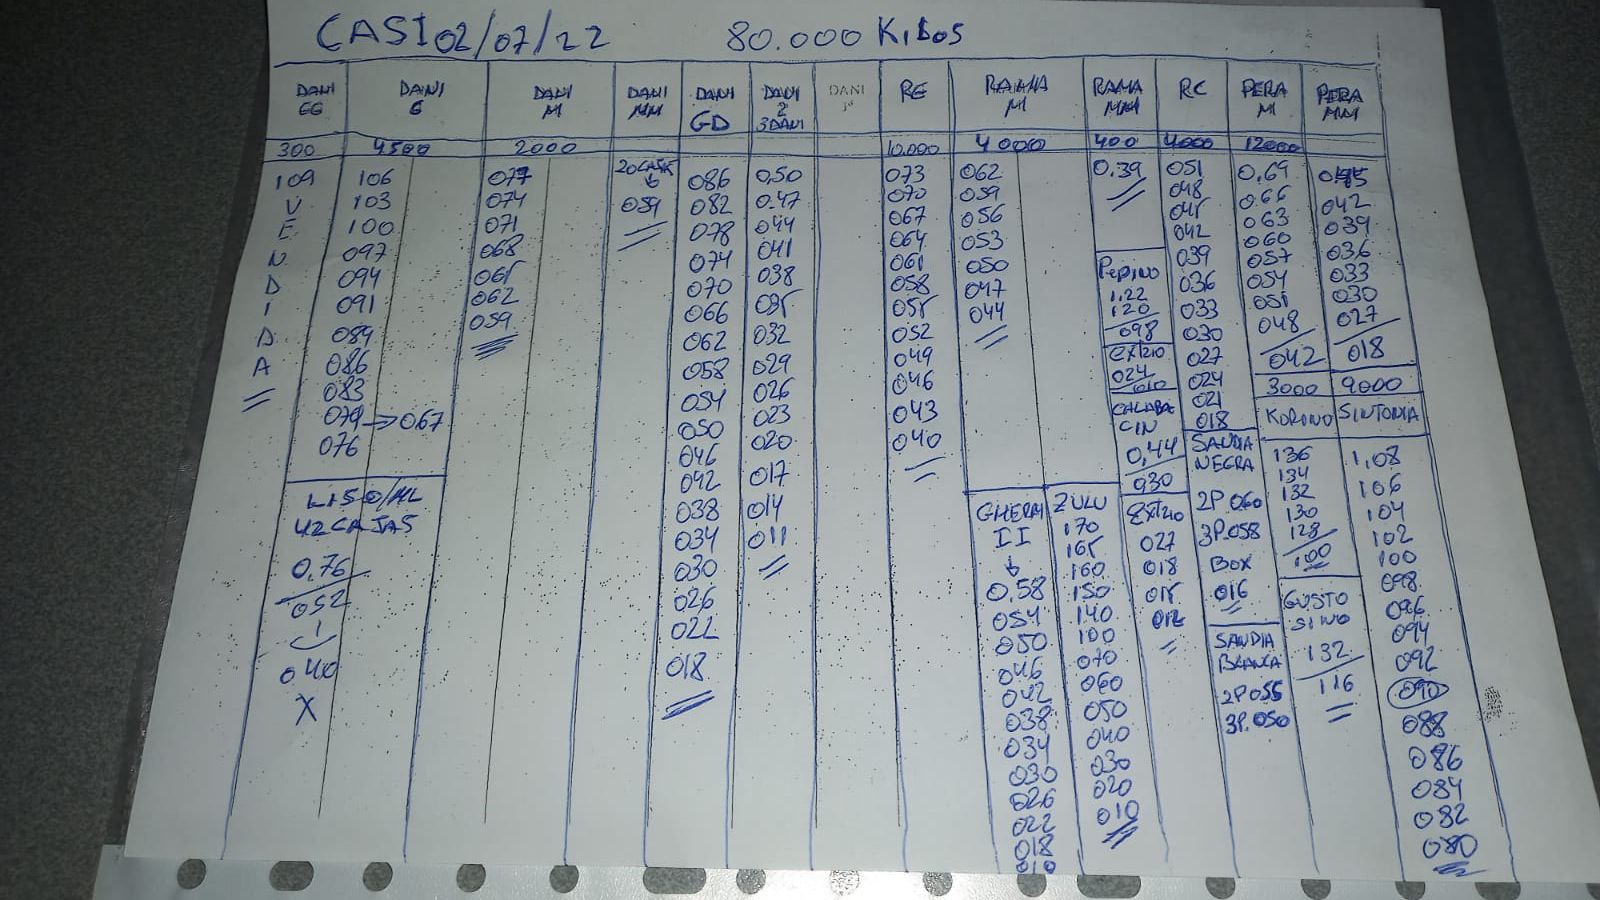 CASI 02/07/22 80.000 KILOS
DANI GG
DANI G
DANI M
DANI MM
DANI GD
DANI 2 3DANI
DANI
RE
RAMA M
RAMA MM
RC
PERA M
PERA MM
300 4500 2000 10.000 4000 400 4000 12000
109
V
E
N
D
I
D
A
106
103
100
097
094
091
089
086
083
079 → 067
076
LISO/AL
42 CAJAS
0,76
052
1
040
X
077
074
071
068
065
062
059
20 CAJAS
↓
059
086
082
078
074
070
066
062
058
054
050
046
042
038
034
030
026
022
018
0,50
0.47
044
041
038
035
032
029
026
023
020
017
014
011
073
070
067
064
061
058
055
052
049
046
043
040
062
059
056
053
050
047
044
GHERAI
II
↓
0.58
054
050
046
042
038
034
030
026
022
018
010
ZULU
170
165
160
150
140
100
070
060
050
040
030
020
010
0.39
PEPINO
1.22
120
098
EXTRIO
024
010
CALABA
CIN
0,44
030
EXTRIO
027
018
015
012
051
048
045
042
039
036
033
030
027
024
021
018
SANDIA
NEGRA
2P 060
3P.058
BOX
016
SANDIA
BLANCA
2P 055
3P.050
0.69
0.66
063
060
057
054
051
048
042
3000
KORINO
136
134
132
130
128
100
GUSTO
SINO
132
116
045
042
039
036
033
030
027
018
9000
SINTONIA
1,08
106
104
102
100
098
096
094
092
090
088
086
084
082
080